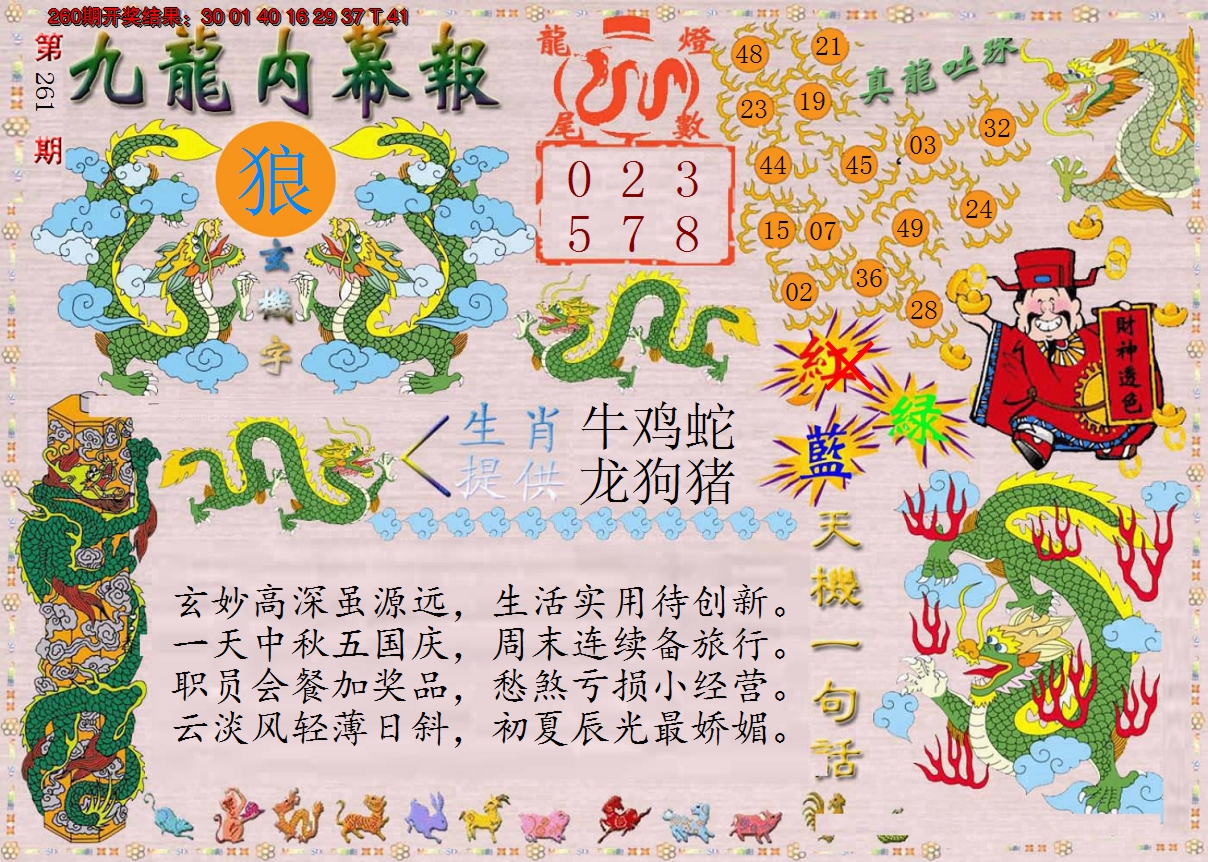 260期开奖结果：30 01 40 16 29 37 T 41
第261期
九龍内幕報
狼
玄機字
龍燈
尾數
0 2 3
5 7 8
真龍吐珠
48 21
23 19
44 45 03 32
15 07 49 24
02 36 28
財神透色
紅
綠
藍
生肖提供
牛鸡蛇
龙狗猪
天機一句話
玄妙高深虽源远，生活实用待创新。
一天中秋五国庆，周末连续备旅行。
职员会餐加奖品，愁煞亏损小经营。
云淡风轻薄日斜，初夏辰光最娇媚。